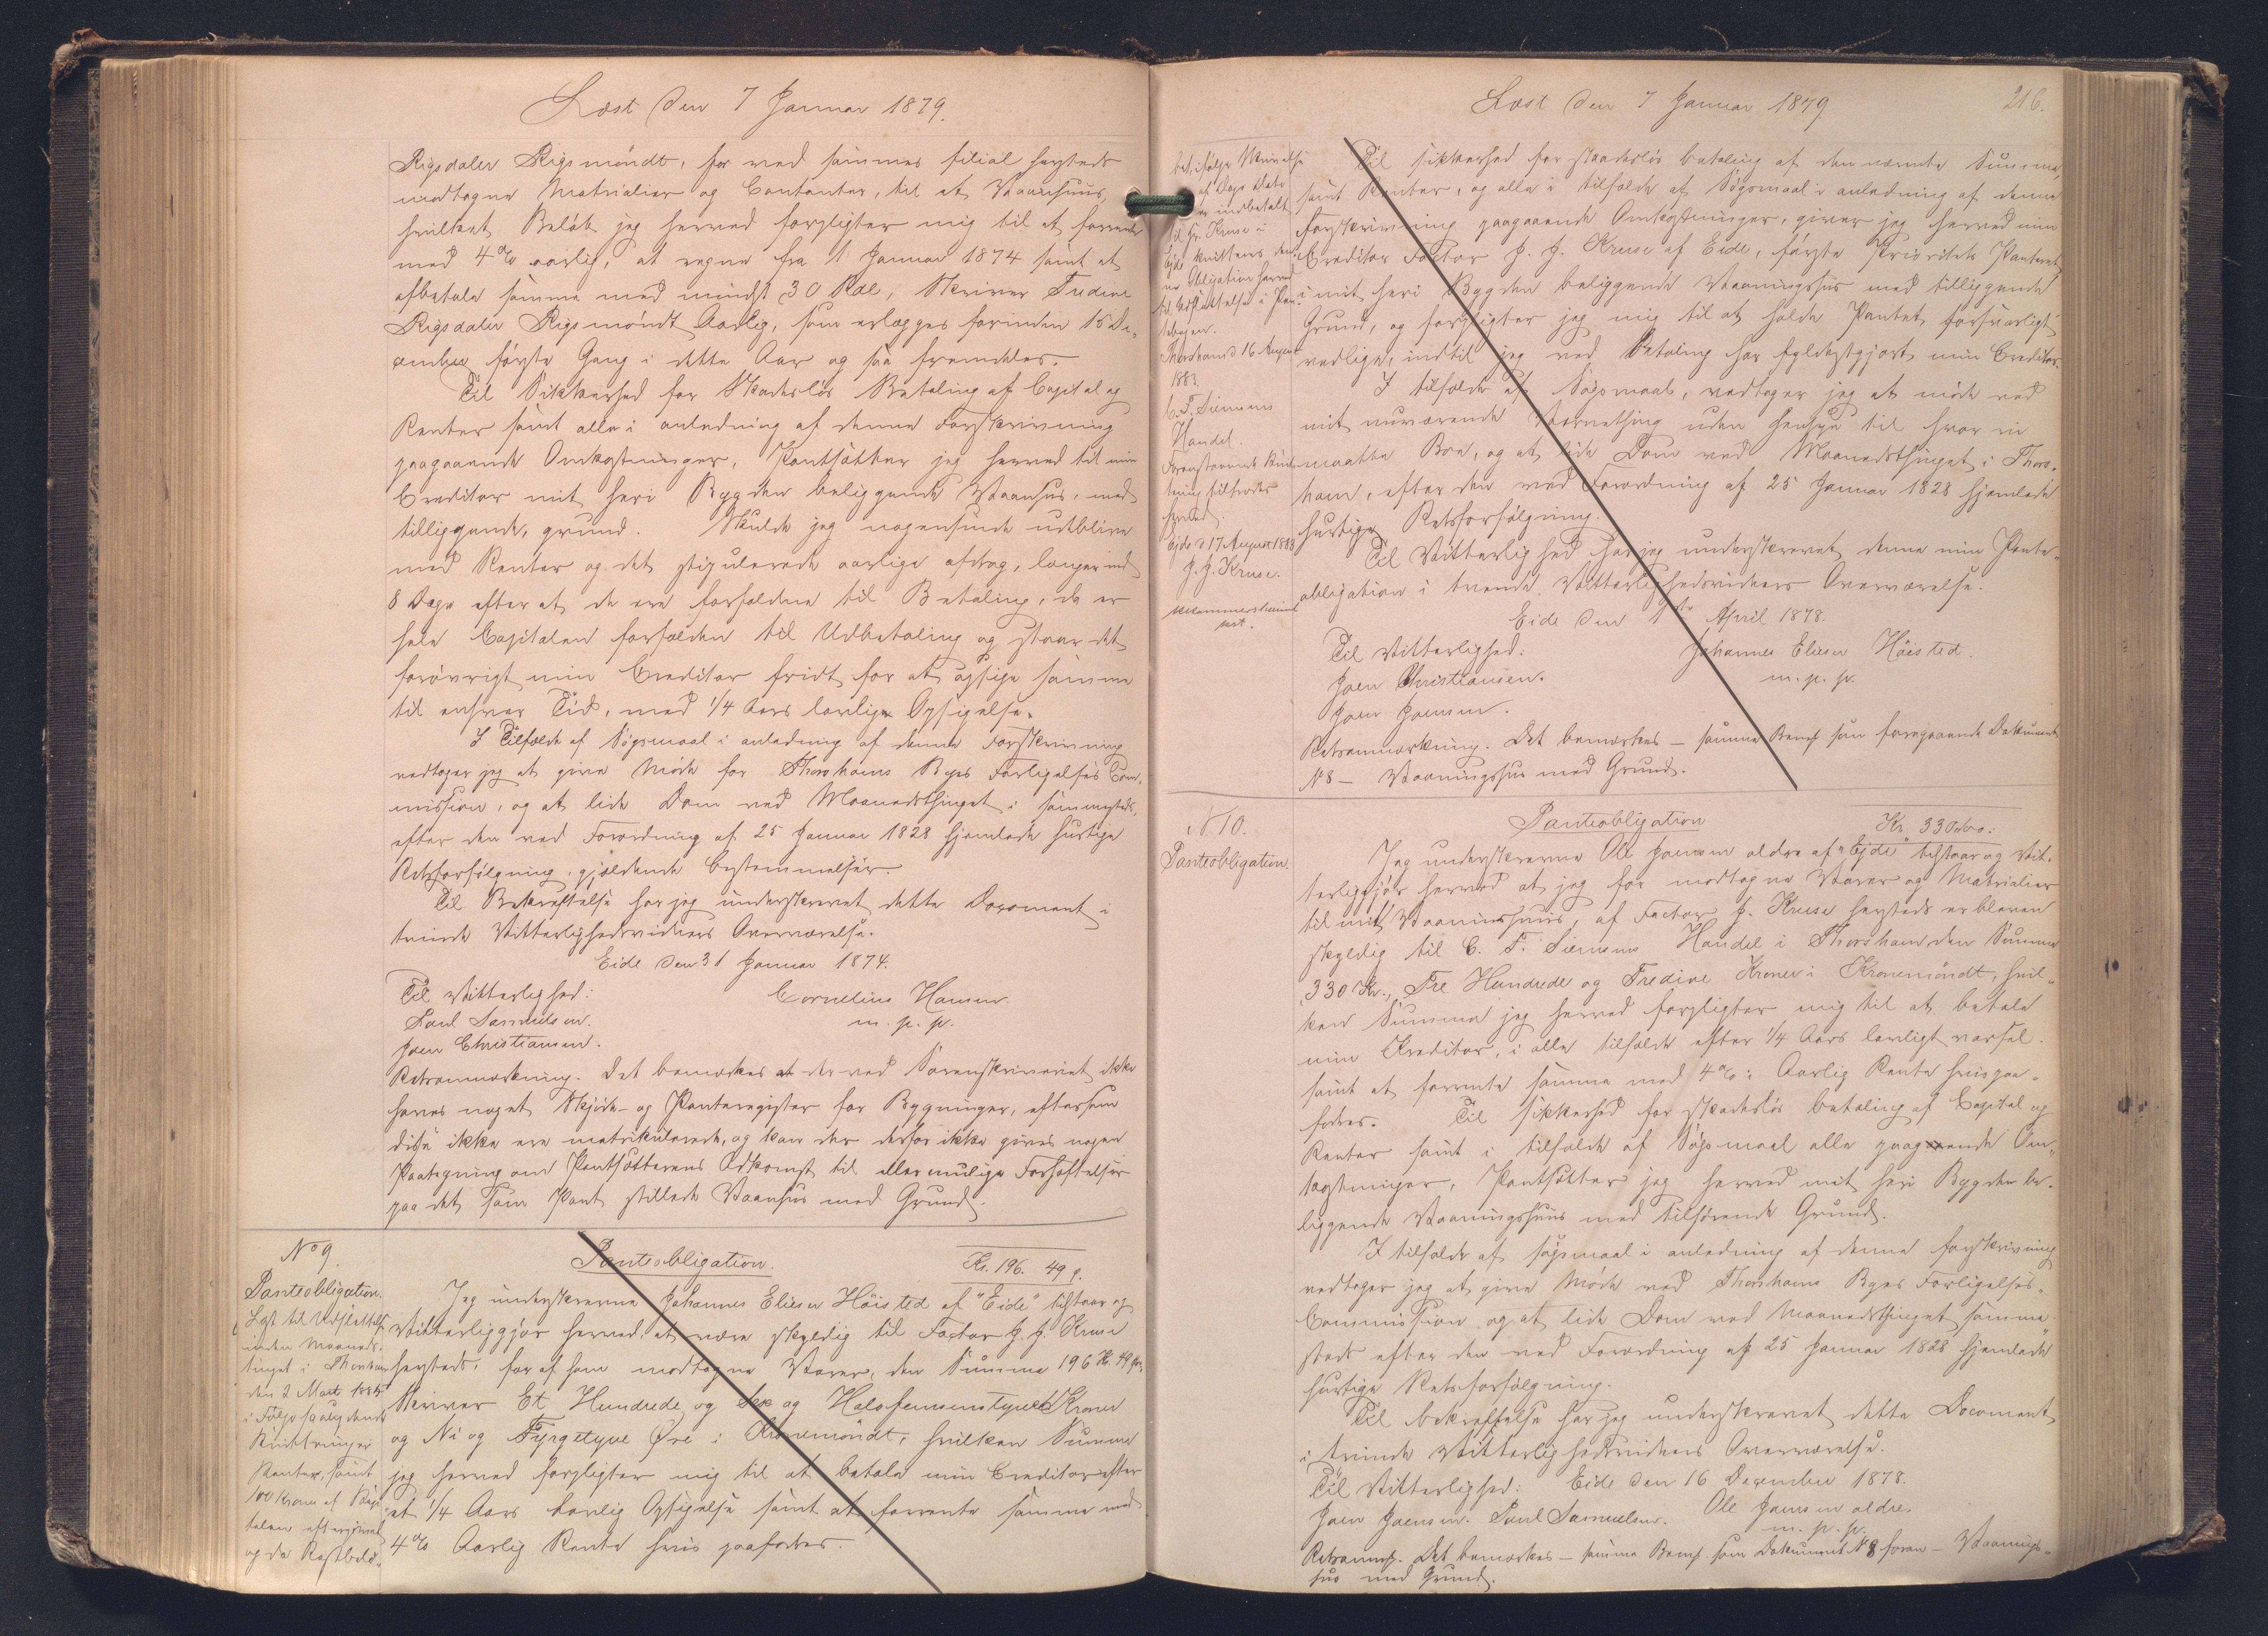 Læst den 7 Januar 1879.
Rigsdaler Rigsmöndt, for ved sammes filial hersteds
modtagne Matrialier og Contanter, til et Vaanhuus,
hvilket Beløb jeg herved forpligter mig til at forrente
med 4 % aarlig, at regne fra 1 Januar 1874 samt at
afbetale samme med mindst 30 Rdl, skriver Tredive
Rigsdaler Rigsmöndt Aarlig, som erlægges forinden 15 De-
cember første Gang i dette Aar og saa fremdeles.
Til Sikkerhed for skadesløs Betaling af Capital og
Renter samt alle i anledning af denne Forskrivning
paagaaende Omkostninger, Pantsætter jeg herved til min
Creditor mit heri Bygden beliggende Vaanhus, med
tilliggende, grund. Skulde jeg nogensinde udeblive
med Renter og det stipulerede aarlige afdrag, længer end
8 Dage efter at de ere forfaldne til Betaling, da er
hele Capitalen forfalden til Udbetaling og staar det
forøvrigt min Creditor fridt for at opsige samme
til enhver Tid, med 1/4 Aars lovlige Opsigelse.
I Tilfælde af Søgsmaal i anledning af denne Forskrivning
vedtager jeg at give Møde for Thorshavns Byes Forligelses Com-
mission, og at lide Dom ved Maanedsthinget i sammesteds,
efter den ved Forordning af 25 Januar 1828 hjemlede hurtige
Retsforfølgning gjældende bestemmelser.
Til Bekræftelse har jeg underskrevet dette Document i
tvende Vitterlighedsvidners Overværelse.
Eide den 31 Januar 1874.
Til Vitterlighed: Cornelius Hansen.
Poul Samuelsen. m. p. p.
Joen Christiansen.
Retsanmærkning. Det bemærkes at der ved Sorenskriveriet ikke
haves noget Skjøde- og Panteregister for Bygninger, eftersom
disse ikke ere matrikulerede, og kan der derfor ikke gives nogen
Paategning om Pantsætterens Adkomst til eller mulige Forhæftelser
paa det som Pant stillede Vaanhus med Grund.
No 9.
Panteobligation.
Lyst til Udslettelse
inden Maaneds-
tinget i Thorshavn
den 2 Marts
i Følge
Kvitteringer
Renter, samt
100 Kroner af Kapi-
talen eftergivet
og da Restbelø-
Panteobligation. Kr. 196. 49 ø.
Jeg underskrevne Johannes Eliesen Höisted af "Eide" tilstaar og
Vitterliggjør herved, at være skyldig til Factor J. J. Kruse
hersteds, for af ham modtagne Varer, den Summa 196 Kr. 49 Øre,
skriver Et Hundrede og Sex og Halvfemsenstyve Kroner
og Ni og Fyrgetyve Øre i Kronemöndt, hvilken Summa
jeg herved forpligter mig til at betale min Creditor efter
et 1/4 Aars lovlig Opsigelse samt at forrente samme med
4 % Aarlig Rente hvis paafodres.
Læst den 7 Januar 1879. 216.
bet, ifølge Skrivelse
af Dags Dato
er indbetalt
til Hr. Kruse i
Ejde kvitteres den-
ne Obligation herved
til Udslettelse i Pan-
tebogen.
Thorshavn d 16 August
1883.
C. F. Siemsens
Handel.
Foranstaaende Kvit-
tering tiltrædes
herved.
Ejde d 17 August 1883
J. J. Kruse.
Til sikkerhed for skadesløs betaling af den nævnte Summa,
samt Renter, og alle i tilfælde af Søgsmaal i anledning af denne
Forskrivning paagaaende Omkostninger, giver jeg herved min
Creditor Factor J. J. Kruse af Eide, første Prioritets Panteret
i mit heri Bygden beliggende Vaaningshus med tilliggende
Grund, og forpligter jeg mig til at holde Pantet forsvarligt
vedlige, indtil jeg ved Betaling har fyldestgjort min Creditor.
I tilfælde af Søgsmaal, vedtager jeg at møde ved
mit nuværende Værnething uden hensyn til hvor en
maatte Boe, og at lide Dom ved Maanedsthinget i Thors-
havn, efter den ved Forordning af 25 Januar 1828 hjemlede
hurtige Retsforfølgning.
Til Vitterlighed har jeg underskrevet denne min Pante-
obligation i tvende Vitterlighedsvidners Overværelse.
Eide den 1ste April 1878.
Til Vitterlighed: Johannes Eliesen Höisted.
Joen Christiansen. m. p. p.
Joen Joensen.
Retsanmærkning. Det bemærkes – samme Bemk som foregaaende Dokument
N 8 – Vaaningshus med Grund.
N. 10.
Panteobligation.
Panteobligation Kr. 330
Jeg underskrevne Ole Joensen ældre af "Ejde" tilstaar og Vit-
terliggjør herved at jeg for modtagne Varer og Matrialier
til mit Vaaninshuus, af Factor J. Kruse hersteds er bleven
skyldig til C. F. Siemsens Handel i Thorshavn den Summa
330 Kr., Tre Hundrede og Tredive Kroner i Kronemöndt, hvil-
ken Summa jeg herved forpligter mig til at betale
min Kreditor, i alle tilfælde efter 1/4 Aars lovligt varsel.
samt at forrente samme med 4 % Aarlig Rente hvis paa-
fodres. Til sikkerhed for skadesløs betaling af Capital og
Renter samt i tilfælde af Søgsmaal alle paagaaende Om-
kostninger, Pantsætter jeg herved mit heri Bygden be-
liggende Vaaningshuus med tilhørende Grund.
I tilfælde af søgsmaal i anledning af denne forskrivning
vedtager jeg at give Møde ved Thorshavns Byes Forligelses-
Commission og at lide Dom ved Maanedsthinget samme-
steds efter den ved Forordning af 25 Januar 1828 hjemlede
hurtige Retsforfølgning.
Til bekræftelse har jeg underskrevet dette Document
i tvende Vitterlighedsvidners Overværelse.
Til Vitterlighed: Eide den 16 December 1878.
Joen Joensen. Poul Samuelsen. Ole Joensen ældre.
m. p. p.
Retsanmk. Det bemærkes – samme Bemk. som Dokument N 8 foran – Vaanings-
hus med Grund.